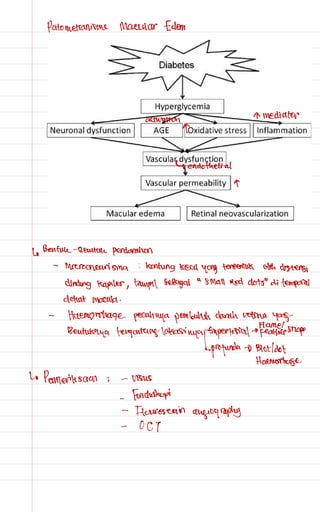 Patomekanisme Macular Edem
Diabetes
Hyperglycemia
↑ mediator
activation
Neuronal dysfunction AGE ↑Oxidative stress Inflammation
Vascular dysfunction
↳ endothelial
Vascular permeability ↑
Macular edema Retinal neovascularization
↳ Bentuk-Bentuk pendarahan
- Microaneurisma : kantung kecil yang terbentuk oleh distensi
dinding kapiler, tampil sebagai "small red dots" di temporal
dekat macula.
- Haemorrhage pecahnya pembuluh darah retina yang
Bentuknya tergantung lokasinya superficial → Flame/
Feather shape
↳ profunda → Blot/dot
Haemorrhage.
↳ Pemeriksaan : - Visus
- Funduskopi
- Fluorescein angiography
- OCT